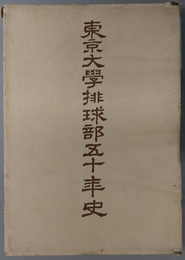 東京大學排球部五十年史